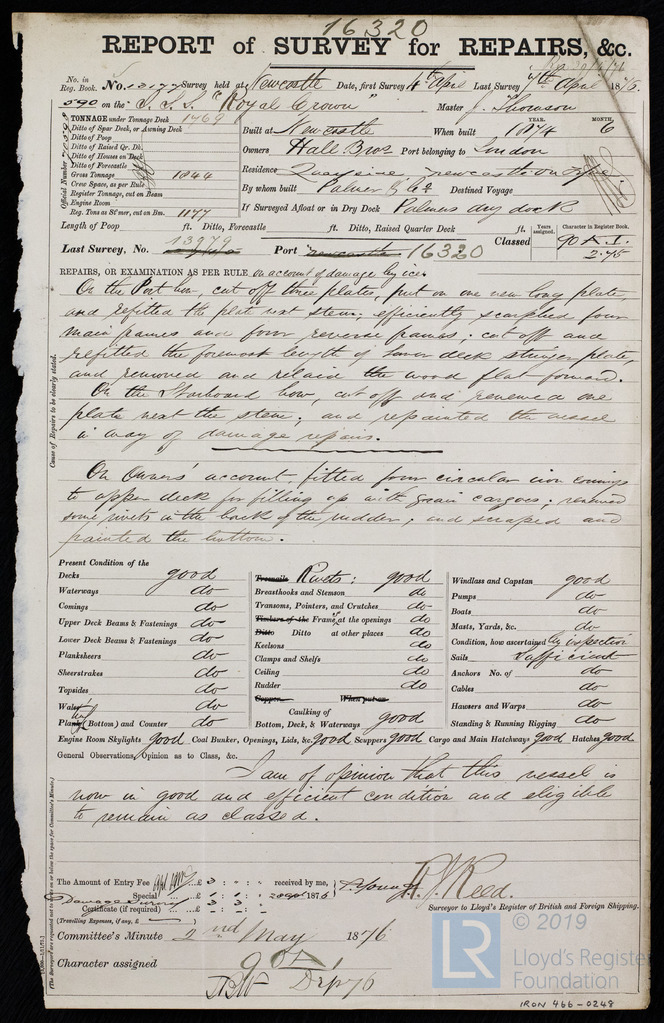 16320
REPORT of SURVEY for REPAIRS, &c.
No. in Reg. Book. No. 13177 Survey held at Newcastle Date, first Survey 4th April Last Survey April 1876.
590 on the S.S. "Royal Crown" Master J. Thomson
TONNAGE under Tonnage Deck 1769
Ditto of Spar Deck, or Awning Deck
Ditto of Poop
Ditto of Raised Qr. Dk.
Ditto of Houses on Deck
Ditto of Forecastle
Gross Tonnage 1844
Crew Space, as per Rule
Register Tonnage, cut on Beam
Engine Room
Reg. Tons as St'mer, cut on Bm. 1177
Official Number
Built at Newcastle When built YEAR. 1874 MONTH. 6
Owners Hall Bros Port belonging to London
Residence Quayside, Newcastle on Tyne
By whom built Palmer & Co Destined Voyage
If Surveyed Afloat or in Dry Dock Palmers dry dock
Length of Poop ft. Ditto, Forecastle ft. Ditto, Raised Quarter Deck ft.
Years assigned. Character in Register Book.
Last Survey, No. 13979 Port Newcastle 16320 Classed 90 A.1. 2.75
REPAIRS, OR EXAMINATION AS PER RULE, on account of damage by ice.
On the Port bow, cut off three plates, put on one new long plate,
and refitted the plate next stem; efficiently scarphed four
main frames and four reverse frames; cut off and
refitted the foremost length of lower deck stringer plate,
and removed and relaid the wood flat forward.
On the Starboard bow, cut off and renewed one
plate next the stem; and repainted the vessel
in way of damage repairs.
On Owners' account, fitted four circular iron comings
to upper deck for filling up with grain cargoes; renewed
some rivets in the back of the rudder; and scraped and
painted the bottom.
Cause of Repairs to be clearly stated.
Present Condition of the
Decks good
Waterways do
Comings do
Upper Deck Beams & Fastenings do
Lower Deck Beams & Fastenings do
Planksheers do
Sheerstrakes do
Topsides do
Wales do
Plating (Bottom) and Counter do
Treenails Rivets: good
Breasthooks and Stemson do
Transoms, Pointers, and Crutches do
Timbers of the Frame at the openings do
Ditto Ditto at other places do
Keelsons do
Clamps and Shelfs do
Ceiling do
Rudder do
Copper When put on
Caulking of Bottom, Deck, & Waterways good
Windlass and Capstan good
Pumps do
Boats do
Masts, Yards, &c. do
Condition, how ascertained by inspection
Sails Sufficient
Anchors No. of do
Cables do
Hawsers and Warps do
Standing & Running Rigging do
Engine Room Skylights good Coal Bunker, Openings, Lids, &c. good Scuppers good Cargo and Main Hatchways good Hatches good
General Observations, Opinion as to Class, &c.
I am of opinion that this vessel is
now in good and efficient condition and eligible
to remain as classed.
The Amount of Entry Fee ...£ : : received by me,
Special ...£ 1876
Damage Survey
Certificate (if required) ...£
(Travelling Expenses, if any, £ )
Reed.
Surveyor to Lloyd's Register of British and Foreign Shipping.
Committee's Minute 2nd May 1876
Character assigned 90 A.1
LR
© 2019
Lloyd's Register
Foundation
IRON 466-0248